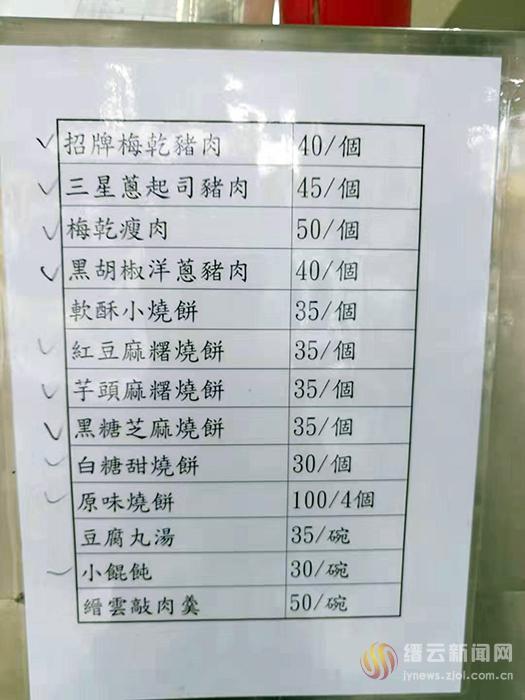 招牌梅乾豬肉 40/個
三星蔥起司豬肉 45/個
梅乾瘦肉 50/個
黑胡椒洋蔥豬肉 40/個
軟酥小燒餅 35/個
紅豆麻糬燒餅 35/個
芋頭麻糬燒餅 35/個
黑糖芝麻燒餅 35/個
白糖甜燒餅 30/個
原味燒餅 100/4個
豆腐丸湯 35/碗
小餛飩 30/碗
縉雲敲肉羹 50/碗
缙云新闻网
jynews.zjol.com.cn